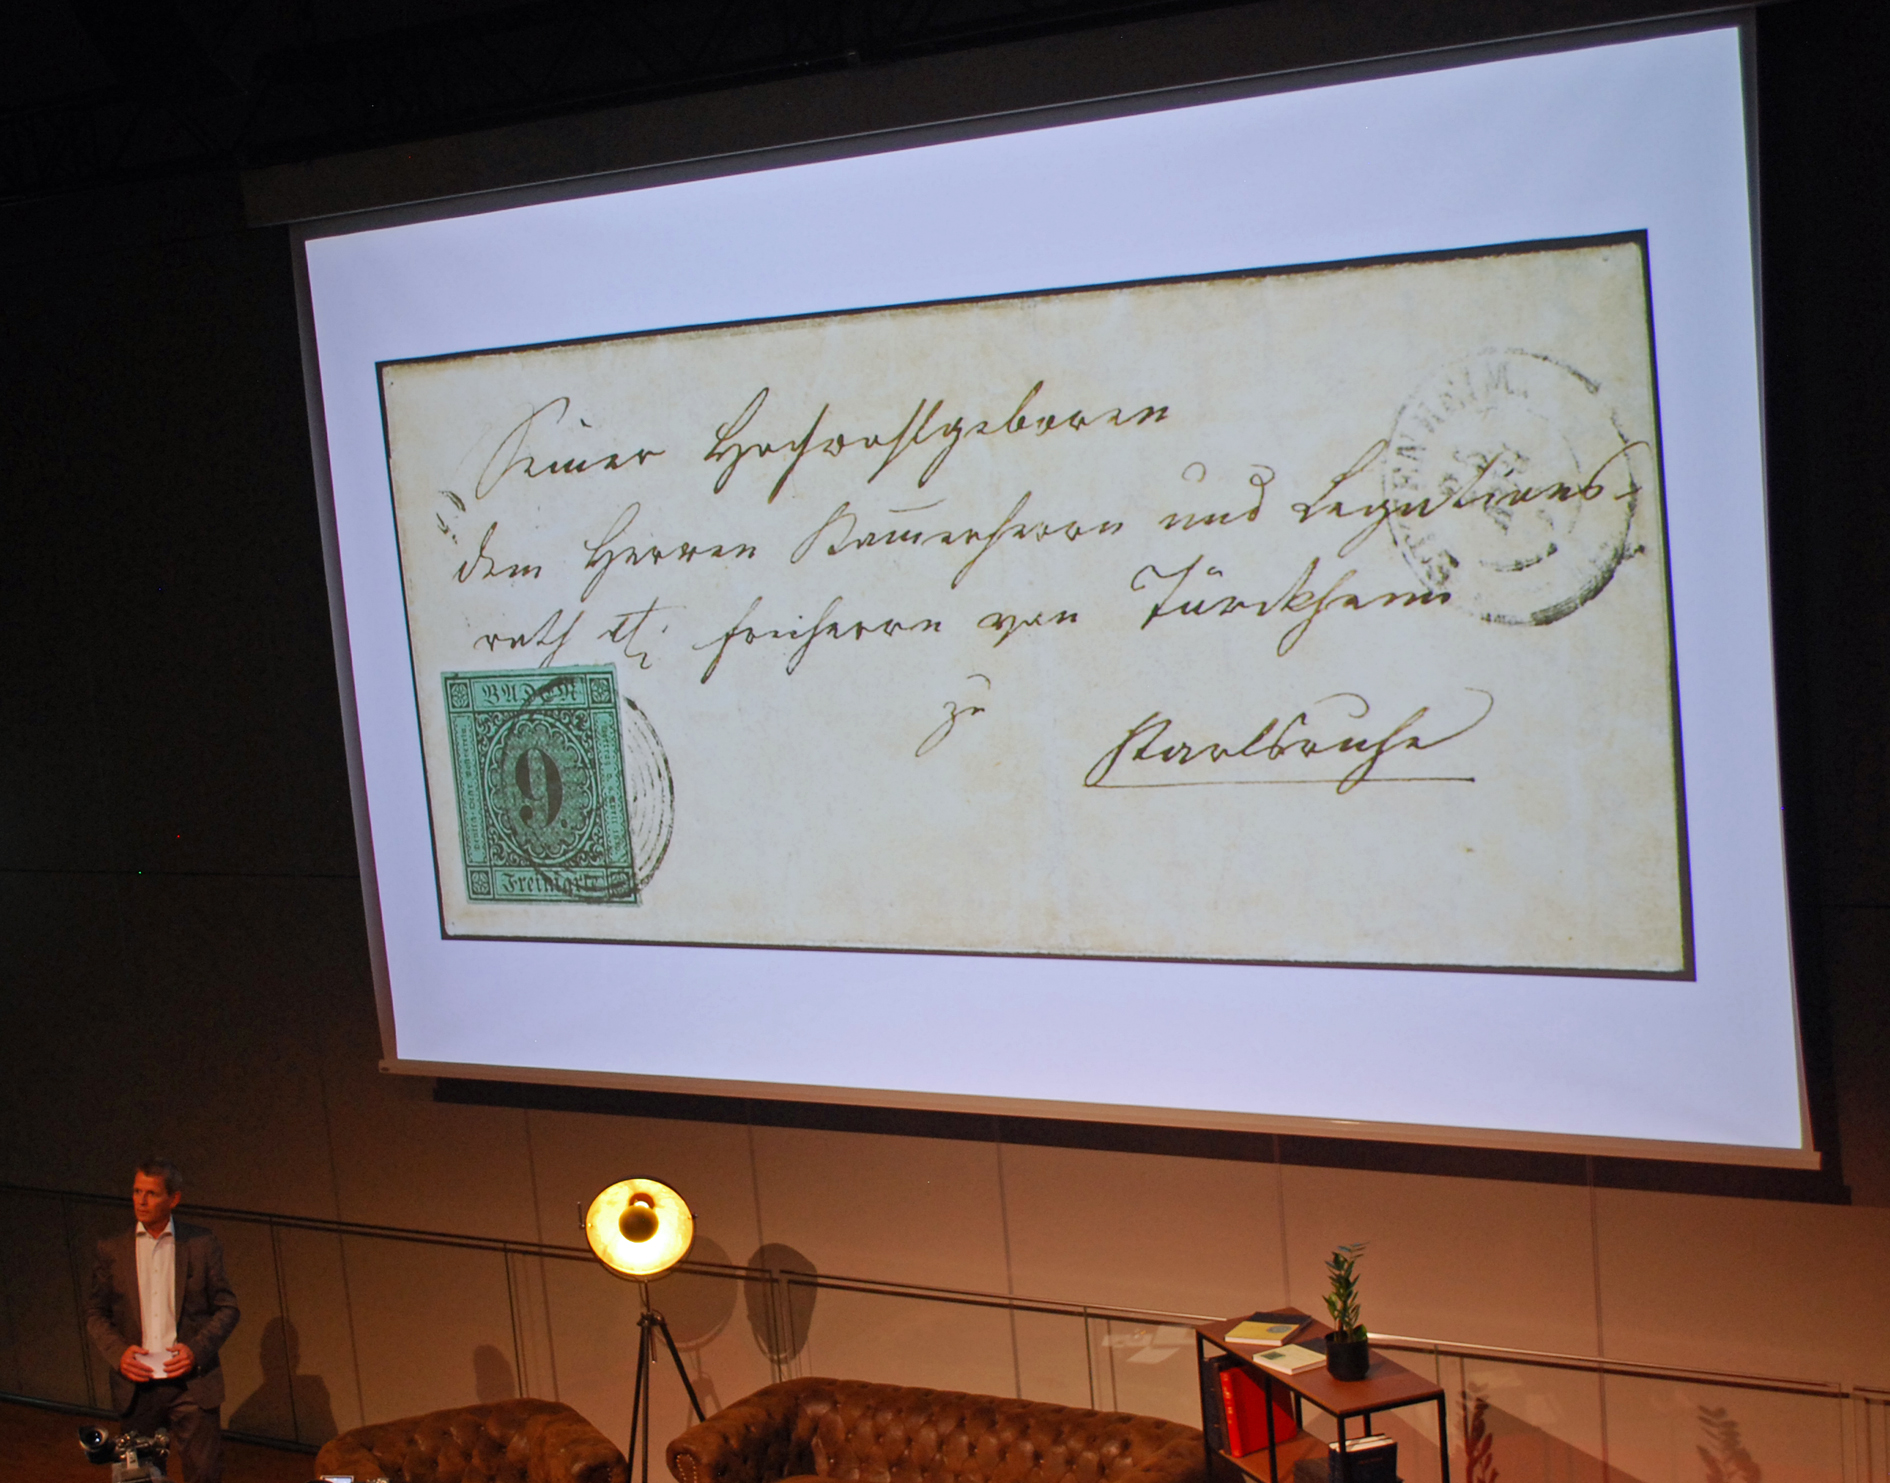 Seiner Hochwohlgeboren
dem Herren Kam̅erherrn und Legations-
rath etc. Freiherrn von Türckheim
zu
Karlsruhe
BADEN
9.
Freimarke
ETTENHEIM.